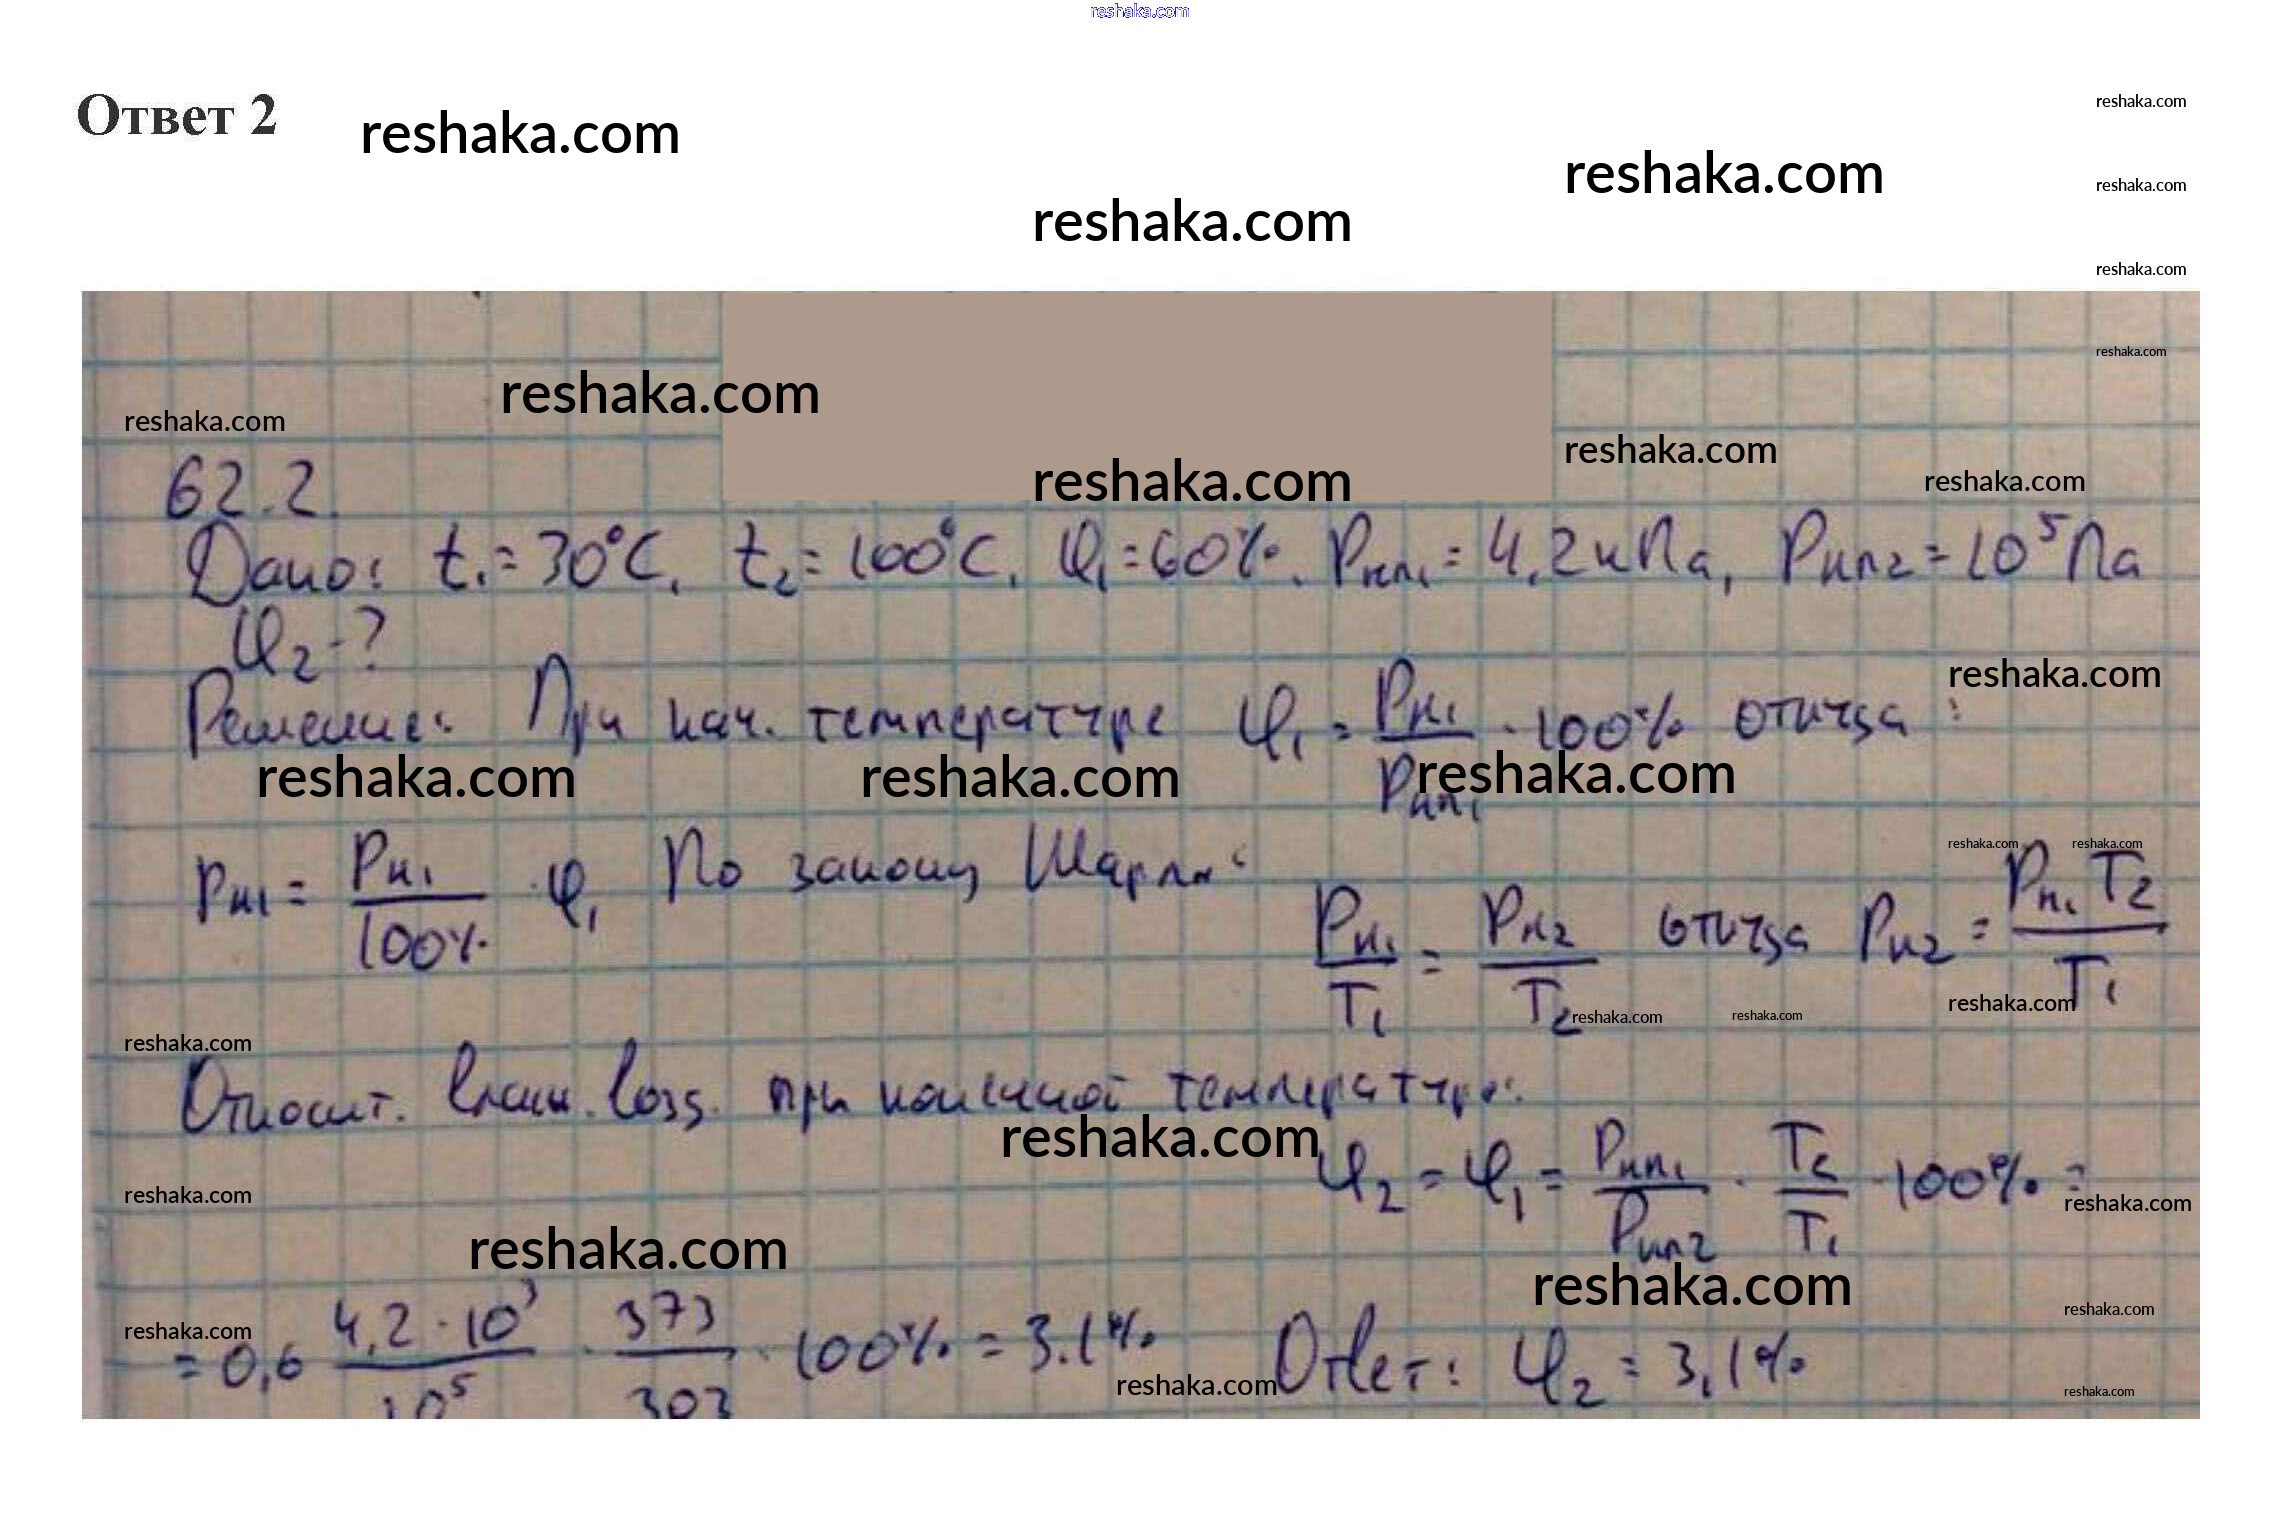 reshaka.com
Ответ 2
reshaka.com
reshaka.com
reshaka.com
reshaka.com
reshaka.com
reshaka.com
reshaka.com
reshaka.com
reshaka.com
reshaka.com
reshaka.com
reshaka.com
62.2.
Дано: t₁ = 30°C, t₂ = 100°C, φ₁ = 60%. Pнп₁ = 4,2 кПа, Pнп2 = 10⁵ Па
φ₂ - ?
reshaka.com
Решение: При нач. температуре φ₁ = Pн₁/Pнп₁ · 100% откуда:
reshaka.com reshaka.com reshaka.com
reshaka.com reshaka.com
Pн₁ = Pн₁/100% · φ₁ По закону Шарля: Pн₁/T₁ = Pн₂/T₂ откуда Pн2 = Pн₁T₂/T₁
reshaka.com reshaka.com reshaka.com
reshaka.com
Относит. влаж. возд. при конечной температуре:
reshaka.com
φ₂ = φ₁ = Pнп₁/Pнп2 · T₂/T₁ · 100% =
reshaka.com reshaka.com
reshaka.com
reshaka.com
reshaka.com
reshaka.com
= 0,6 4,2 · 10³/10⁵ · 373/303 · 100% = 3.1% Ответ: φ₂ = 3,1%
reshaka.com
reshaka.com